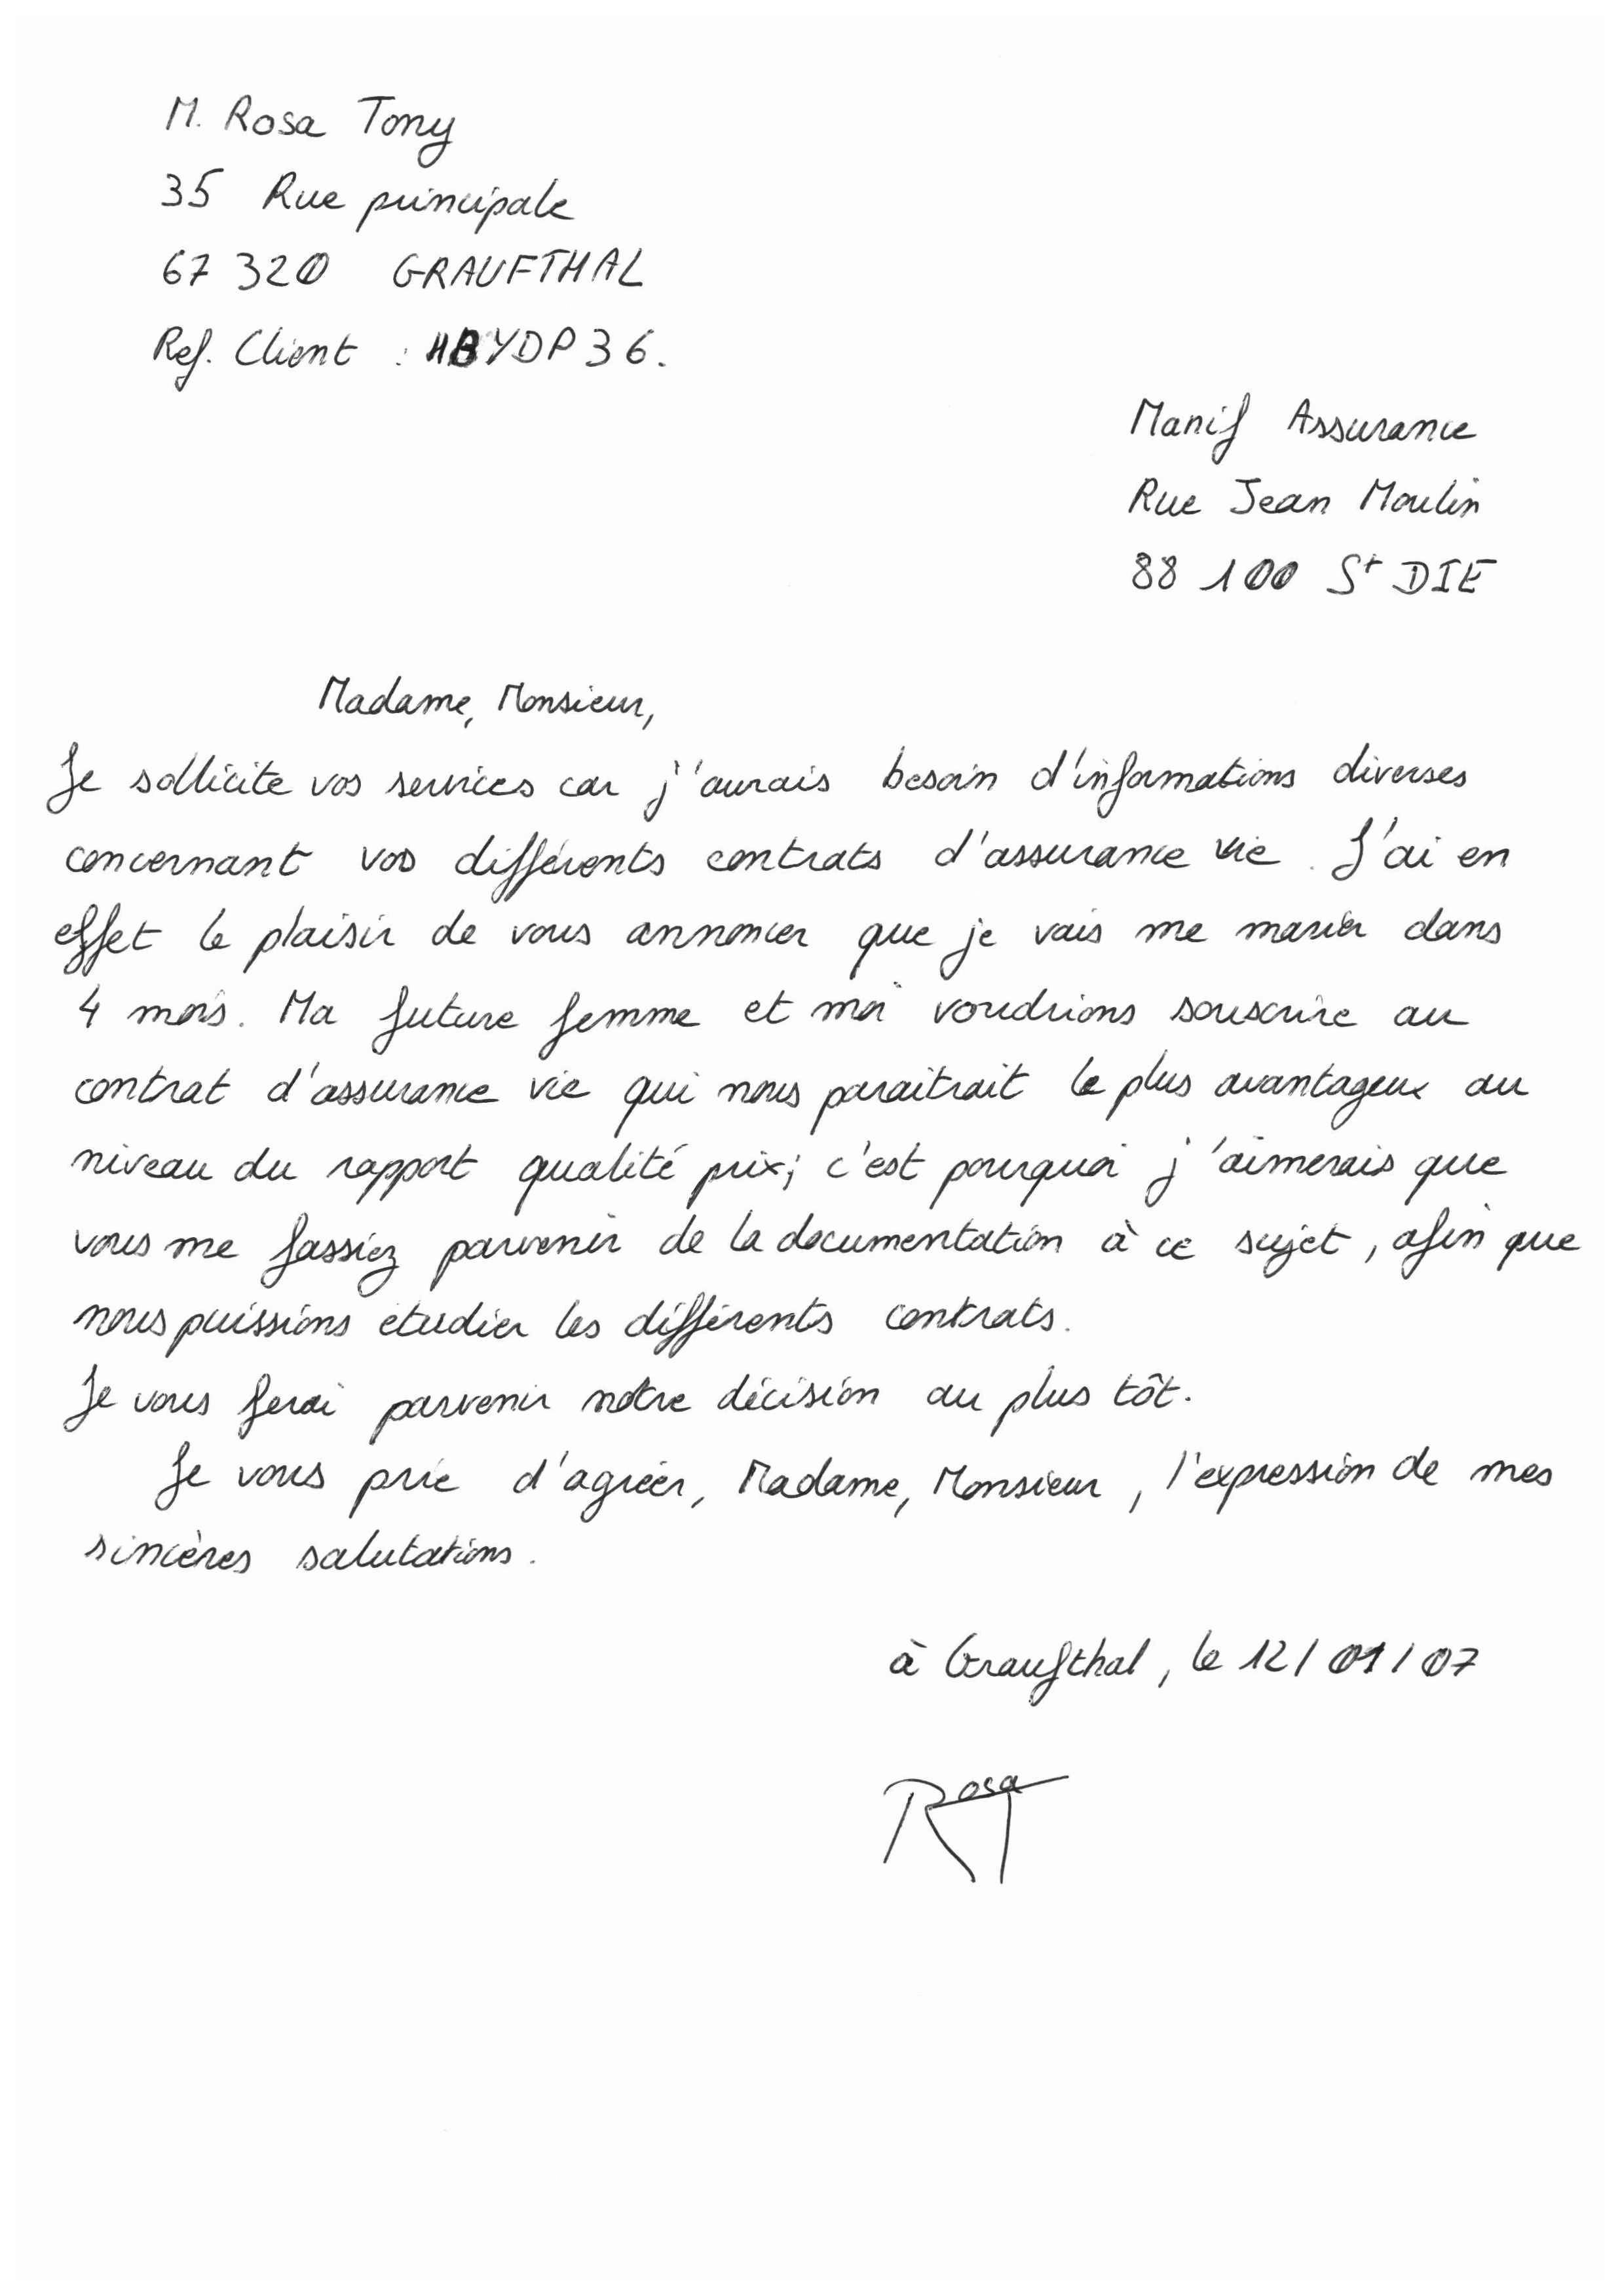 M. Rosa Tony
35 Rue principale
67 320 GRAUFTHAL
Ref. Client : HBYDP36.
Manif Assurance
Rue Jean Moulin
88 100 St DIE
Madame, Monsieur,
Je sollicite vos services car j'aurais besoin d'informations diverses
concernant vos différents contrats d'assurance vie. J'ai en
effet le plaisir de vous annoncer que je vais me marier dans
4 mois. Ma future femme et moi voudrions souscrire au
contrat d'assurance vie qui nous paraitrait le plus avantageux au
niveau du rapport qualité prix; c'est pourquoi j'aimerais que
vous me fassiez parvenir de la documentation à ce sujet, afin que
nous puissions étudier les différents contrats.
Je vous ferai parvenir notre décision au plus tôt.
Je vous prie d'agréer, Madame, Monsieur, l'expression de mes
sincères salutations.
à Graufthal, le 12/01/07
Rosa